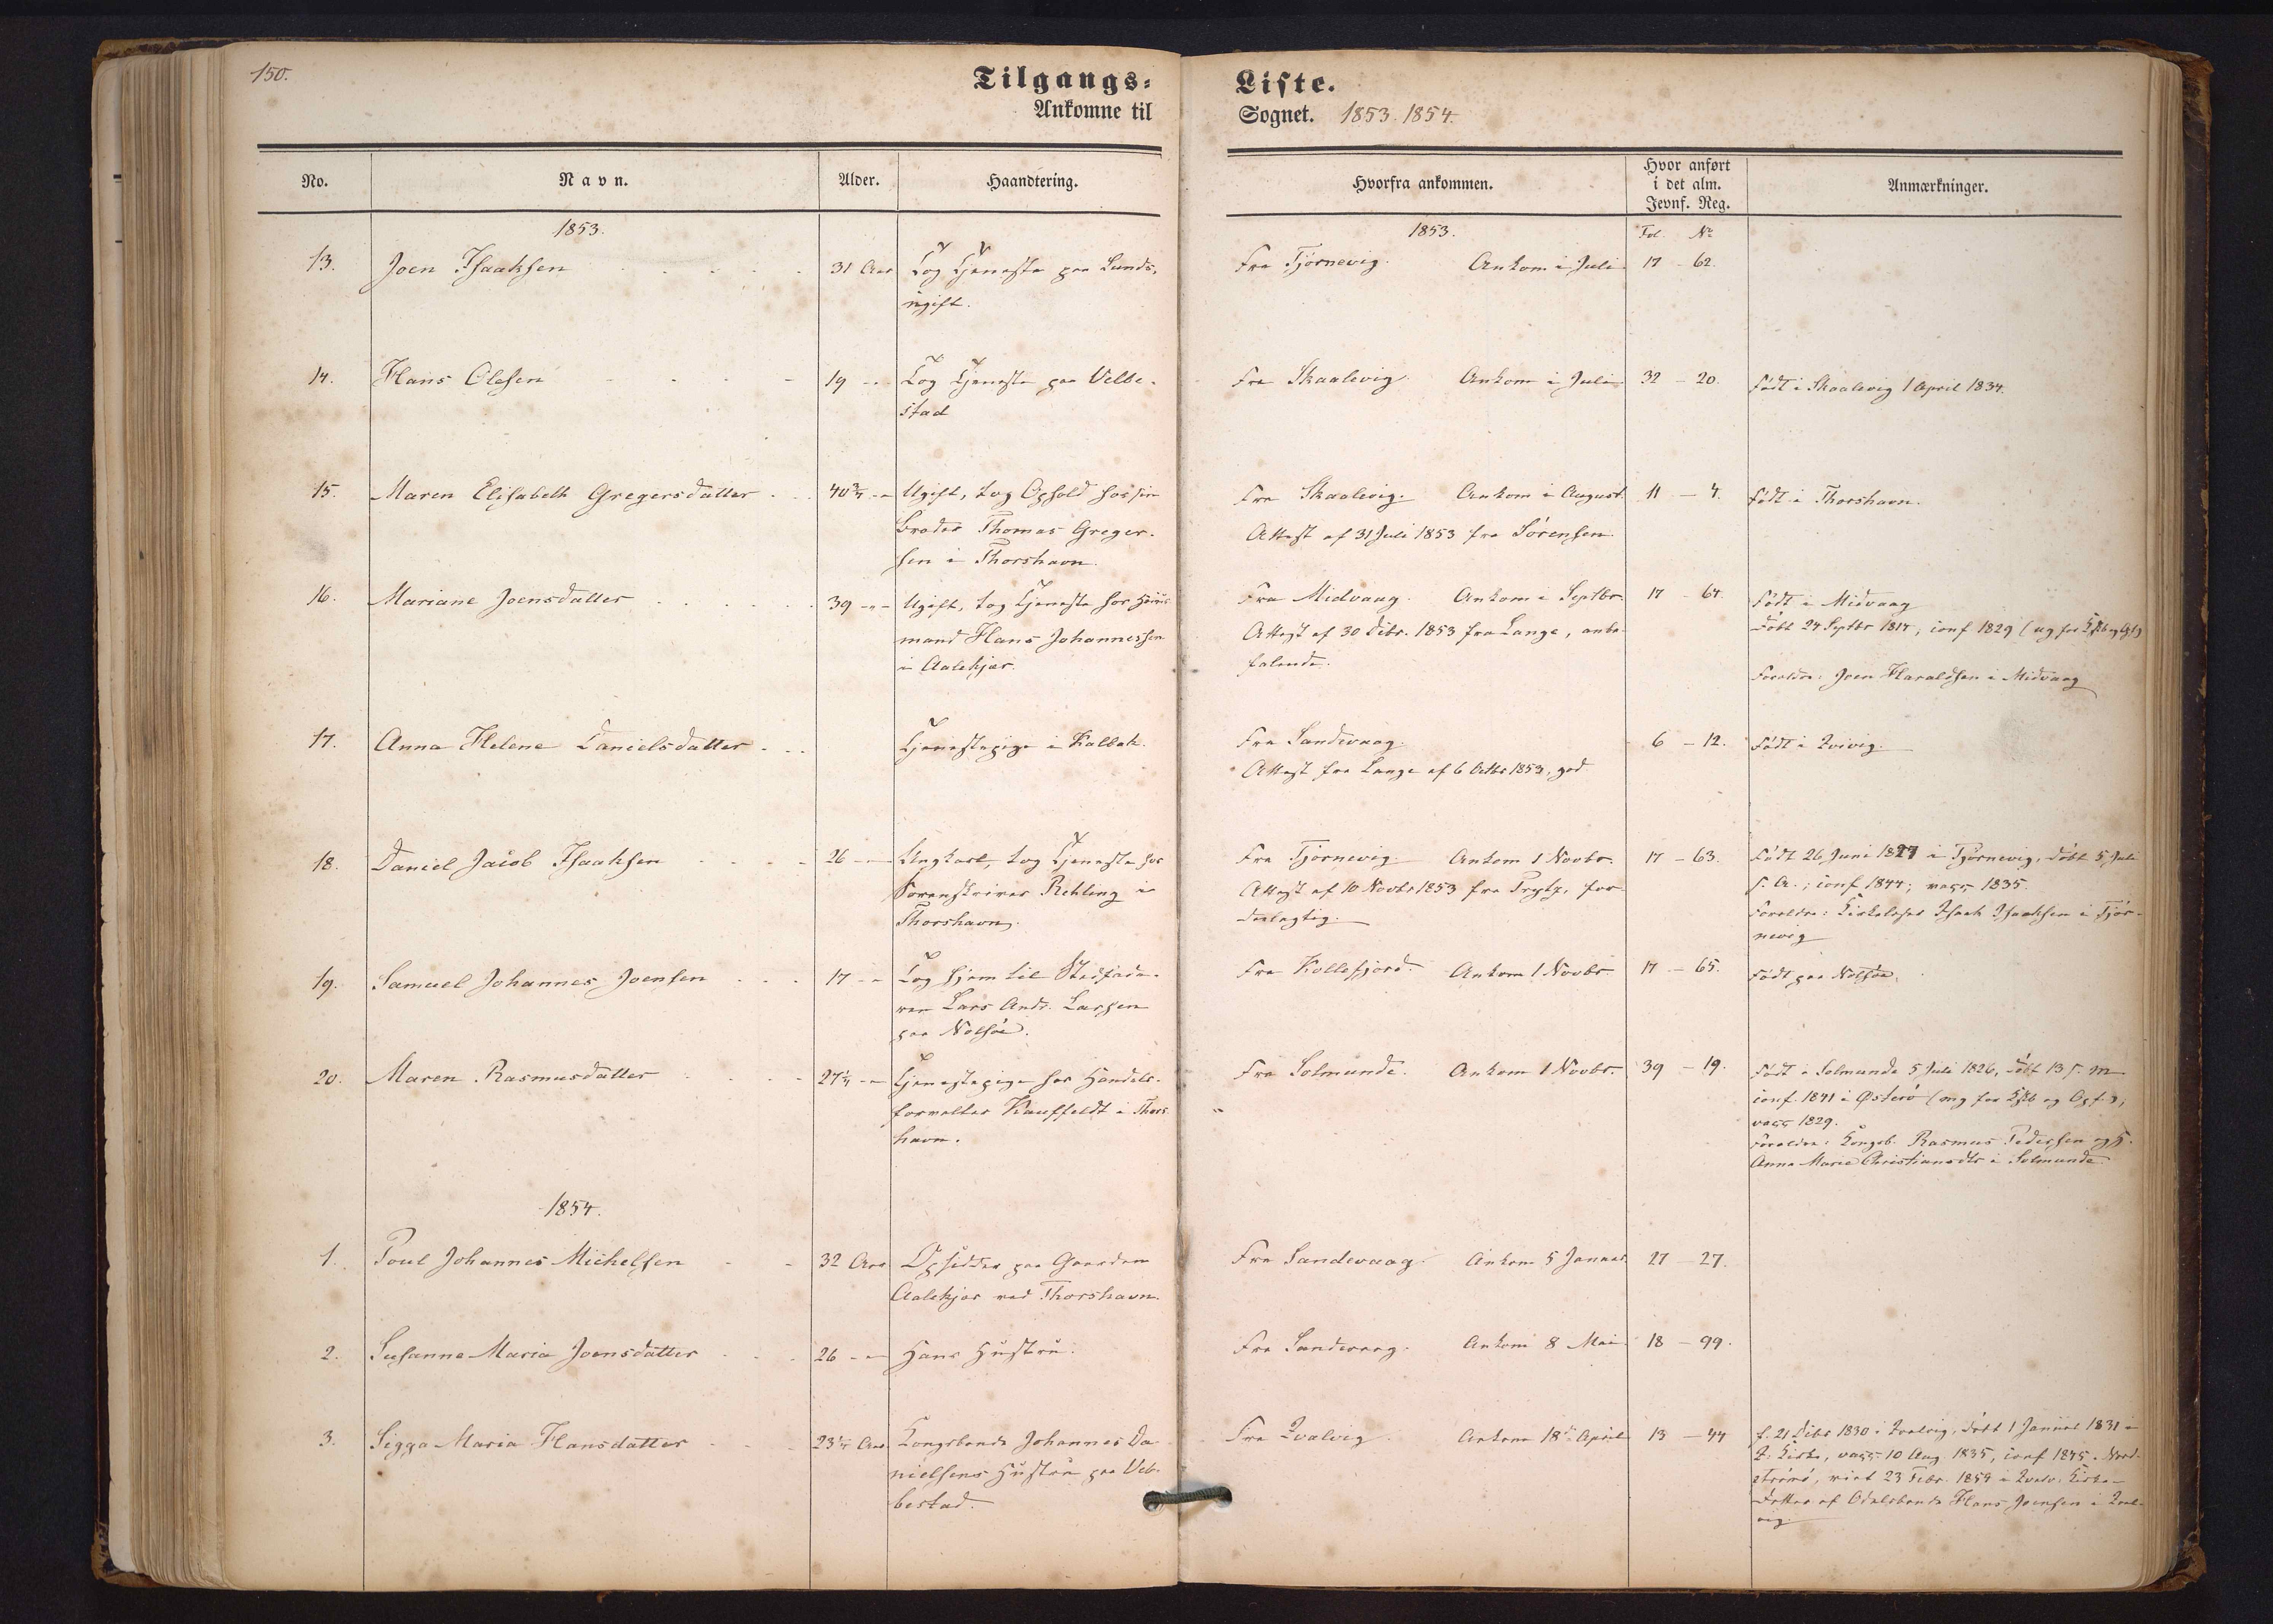 150.
Tilgangs-
Ankomne til
Liste.
Sognet. 1853. 1854.
No.
Navn.
Alder.
Haandtering.
Hvorfra ankommen.
Hvor anført
i det alm.
Jevnf. Reg.
Anmærkninger.
1853.
1853.
Fol. No
13. Joen Isaaksen 31 Aar Tog Tjeneste paa Lunds- Fra Tjörnevig. Ankom i Juli 17 - 62.
14. Hans Olesen 19 Tog Tjeneste paa Velbe- Fra Skaalevig Ankom i Juli 32 - 20. Födt i Skaalevig 1 April 1834.
stad
15. Maren Elisabeth Gregersdatter 40 3/4 Ugift, tog Ophold hos sin Fra Skaalevig. Ankom i August. 11 - 4. Födt i Thorshavn.
Broder Thomas Greger- Attest af 31 Juli 1853 fra Sörensen
sen i Thorshavn.
16. Mariane Joensdatter 39 Ugift, tog Tjeneste hos Huus- Fra Midvaag. Ankom i Septbr. 17 - 64. Födt i Midvaag
mand Hans Johannessen Attest af 30 Decbr. 1853 fra Lange, anbe- Döbt 24 Septbr 1814, conf 1829
i Aalekjær. falende. Forældre: Joen Haraldsen i Midvaag
17. Anna Helene Danielsdatter Tjenestepige i Kalbak. Fra Sandevaag. 6 - 12. Födt i Qvivig.
Attest fra Lange af 6 Octbr 1853, god
18. Daniel Jacob Isaaksen 26 Ungkarl, tog Tjeneste hos Fra Tjörnevig. Ankom 1 Novbr. 17 - 63. Födt 26 Juni 1827 i Tjörnevig, döbt 5 Juli
Sorenskriver Rehling i Attest af 10 Novbr 1853 fra Prytz, for- s. A.; conf 1844; vacc 1835.
Thorshavn. deelagtig. Forældre: Isaak Isaaksen i Tjör-
nevig
19. Samuel Johannes Joensen 17 Tog hjem til Stedfade- Fra Kollefjord. Ankom 1 Novbr 17 - 65. Födt paa Nolsöe.
ren Lars Andr. Larsen
paa Nolsöe.
20. Maren Rasmusdatter 27 1/4 Tjenestepige hos Handels- Fra Solmunde. Ankom 1 Novbr. 39 - 19. Födt i Solmunde 5 Juli 1826, döbt 13 s. M
forvalter Kauffeldt i Thors- conf. 1841 i Østerö
havn. vacc 1829.
Forældre: Kongsb. Rasmus Pedersen og H.
Anna Marie Christiansdtr i Solmunde.
1854.
1. Poul Johannes Michelsen 32 Aar Opsidder paa Gaarden Fra Sandevaag. Ankom 5 Januar. 27 - 27.
Aalekjær ved Thorshavn.
2. Susanne Maria Joensdatter 26 Hans Hustru. Fra Sandevaag. Ankom 8 Mai 18 - 99.
3. Sigga Maria Hansdatter 23 1/4 Aar Kongsbonde Johannes Da- Fra Qvalvig. Ankom 18de April 13 - 44 f. 21 Decbr 1830 i Qvalvig, döbt 1 Januar 1831 i
nielsens Hustru paa Vel- Q. Kirke, vacc. 10 Aug 1835, conf 1845 i Nord-
bestad. strömö, viet 23 Febr. 1854 i Qvalv. Kirke
Datter af Odelsbonde Hans Joensen i Qval-
vig.